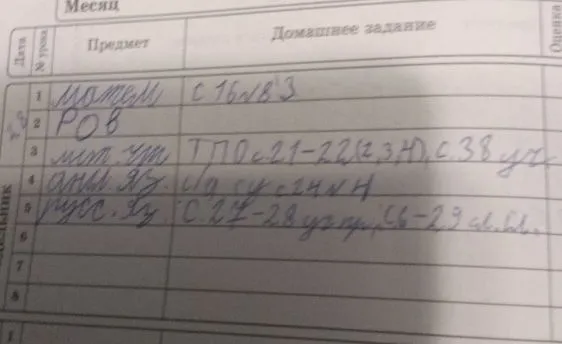 Месяц
Дата № урока Предмет Домашнее задание Оценка
1 матем с 16 № 8 3
2 РОВ
3 лит. чт ТПО с 21-22 (2,3,4), с. 38 уч
4 англ яз.
5 русс. яз с. 27-28 упр, 29
6
7
8
1